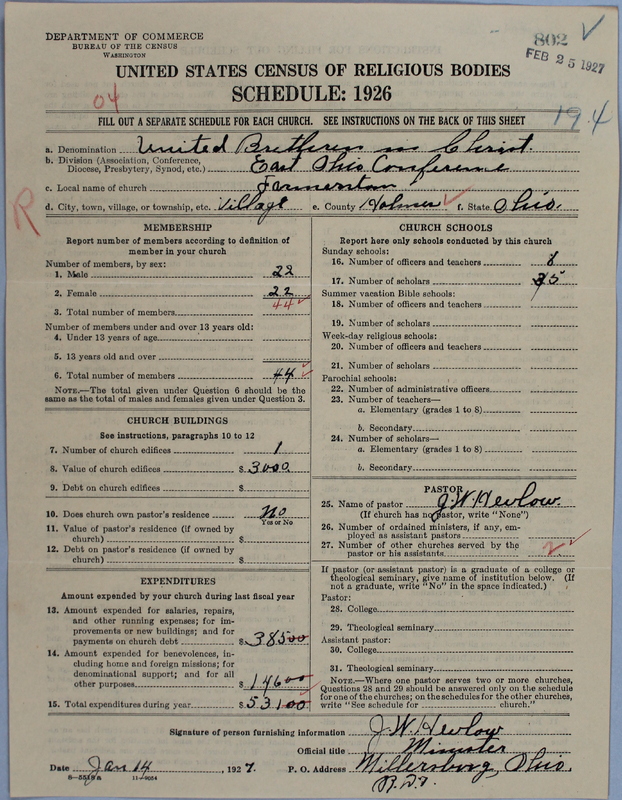 DEPARTMENT OF COMMERCE
BUREAU OF THE CENSUS
WASHINGTON
802
FEB 25 1927
UNITED STATES CENSUS OF RELIGIOUS BODIES
SCHEDULE: 1926
04
FILL OUT A SEPARATE SCHEDULE FOR EACH CHURCH. SEE INSTRUCTIONS ON THE BACK OF THIS SHEET
19.4
a. Denomination United Brethren in Christ.
b. Division (Association, Conference, Diocese, Presbytery, Synod, etc.) East Ohio Conference
c. Local name of church Farmerstown
d. City, town, village, or township, etc. Village e. County Holmes f. State Ohio.
R
MEMBERSHIP
Report number of members according to definition of
member in your church
Number of members, by sex:
1. Male 22
2. Female 22
3. Total number of members 44
Number of members under and over 13 years old:
4. Under 13 years of age
5. 13 years old and over
6. Total number of members 44
NOTE.—The total given under Question 6 should be
same as the total of males and females given under Question 3.
CHURCH BUILDINGS
See instructions, paragraphs 10 to 12
7. Number of church edifices 1
8. Value of church edifices $ 3000
9. Debt on church edifices $
10. Does church own pastor's residence No
Yes or No
11. Value of pastor's residence (if owned by
church) $
12. Debt on pastor's residence (if owned by
church) $
EXPENDITURES
Amount expended by your church during last fiscal year
13. Amount expended for salaries, repairs,
and other running expenses; for im-
provements or new buildings; and for
payments on church debt $ 385 00
14. Amount expended for benevolences, in-
cluding home and foreign missions; for
denominational support; and for all
other purposes $ 146 00
15. Total expenditures during year $ 531 00
CHURCH SCHOOLS
Report here only schools conducted by this church
Sunday schools:
16. Number of officers and teachers 8
17. Number of scholars 35
Summer vacation Bible schools:
18. Number of officers and teachers
19. Number of scholars
Week-day religious schools:
20. Number of officers and teachers
21. Number of scholars
Parochial schools:
22. Number of administrative officers
23. Number of teachers—
a. Elementary (grades 1 to 8)
b. Secondary
24. Number of scholars—
a. Elementary (grades 1 to 8)
b. Secondary
PASTOR
25. Name of pastor J. W. Hewlow.
(If church has no pastor, write "None")
26. Number of ordained ministers, if any, em-
ployed as assistant pastors
27. Number of other churches served by the
pastor or his assistants 2
If pastor (or assistant pastor) is a graduate of a college or
theological seminary, give name of institution below. (If
not a graduate, write "No" in the space indicated.)
Pastor:
28. College
29. Theological seminary
Assistant pastor:
30. College
31. Theological seminary
NOTE.—Where one pastor serves two or more churches,
Questions 28 and 29 should be answered only on the schedule
for one of the churches; on the schedules for the other churches,
write "See schedule for church."
Signature of person furnishing information J. W. Hewlow
Official title Minister
Date Jan 14, 1927. P. O. Address Millersburg, Ohio.
8—5518a 11—9054